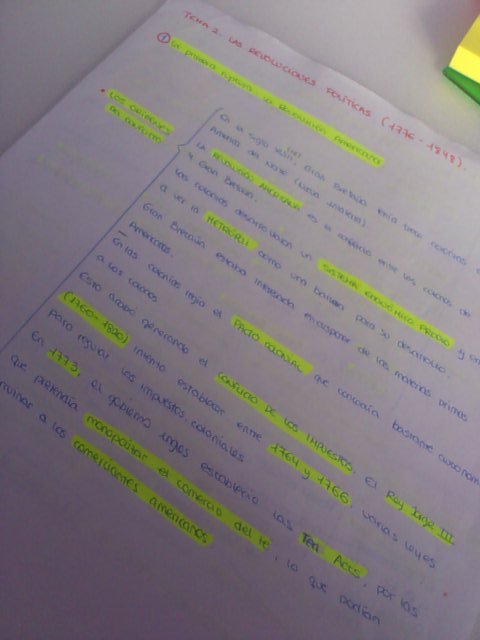 TEMA 2. LAS REVOLUCIONES POLÍTICAS (1776-1848).
① La primera ruptura: La Revolución Americana
• LOS ORÍGENES DEL CONFLICTO
En el siglo XVIII, Gran Bretaña tenía trece colonias
América del Norte (Nueva Inglaterra)
La REVOLUCIÓN AMERICANA es el conflicto entre los colonos de
y Gran Bretaña.
Las colonias desarrollaron un SISTEMA ECONÓMICO PROPIO y
a ver la METRÓPOLI como una barrera para su desarrollo.
Gran Bretaña estaba interesada en disponer de las materias primas
Americanas.
En las colonias regía el PACTO COLONIAL que concedía bastante autonomía
a los colonos
Esto acabó generando el CONFLICTO DE LOS IMPUESTOS. El Rey Jorge III
(1760-1820) intentó establecer entre 1764 y 1766, varias leyes
para regular los impuestos coloniales
En 1773, el gobierno inglés estableció las Tea Acts, por las
que pretendía monopolizar el comercio del té, lo que podían
minar a los comerciantes americanos